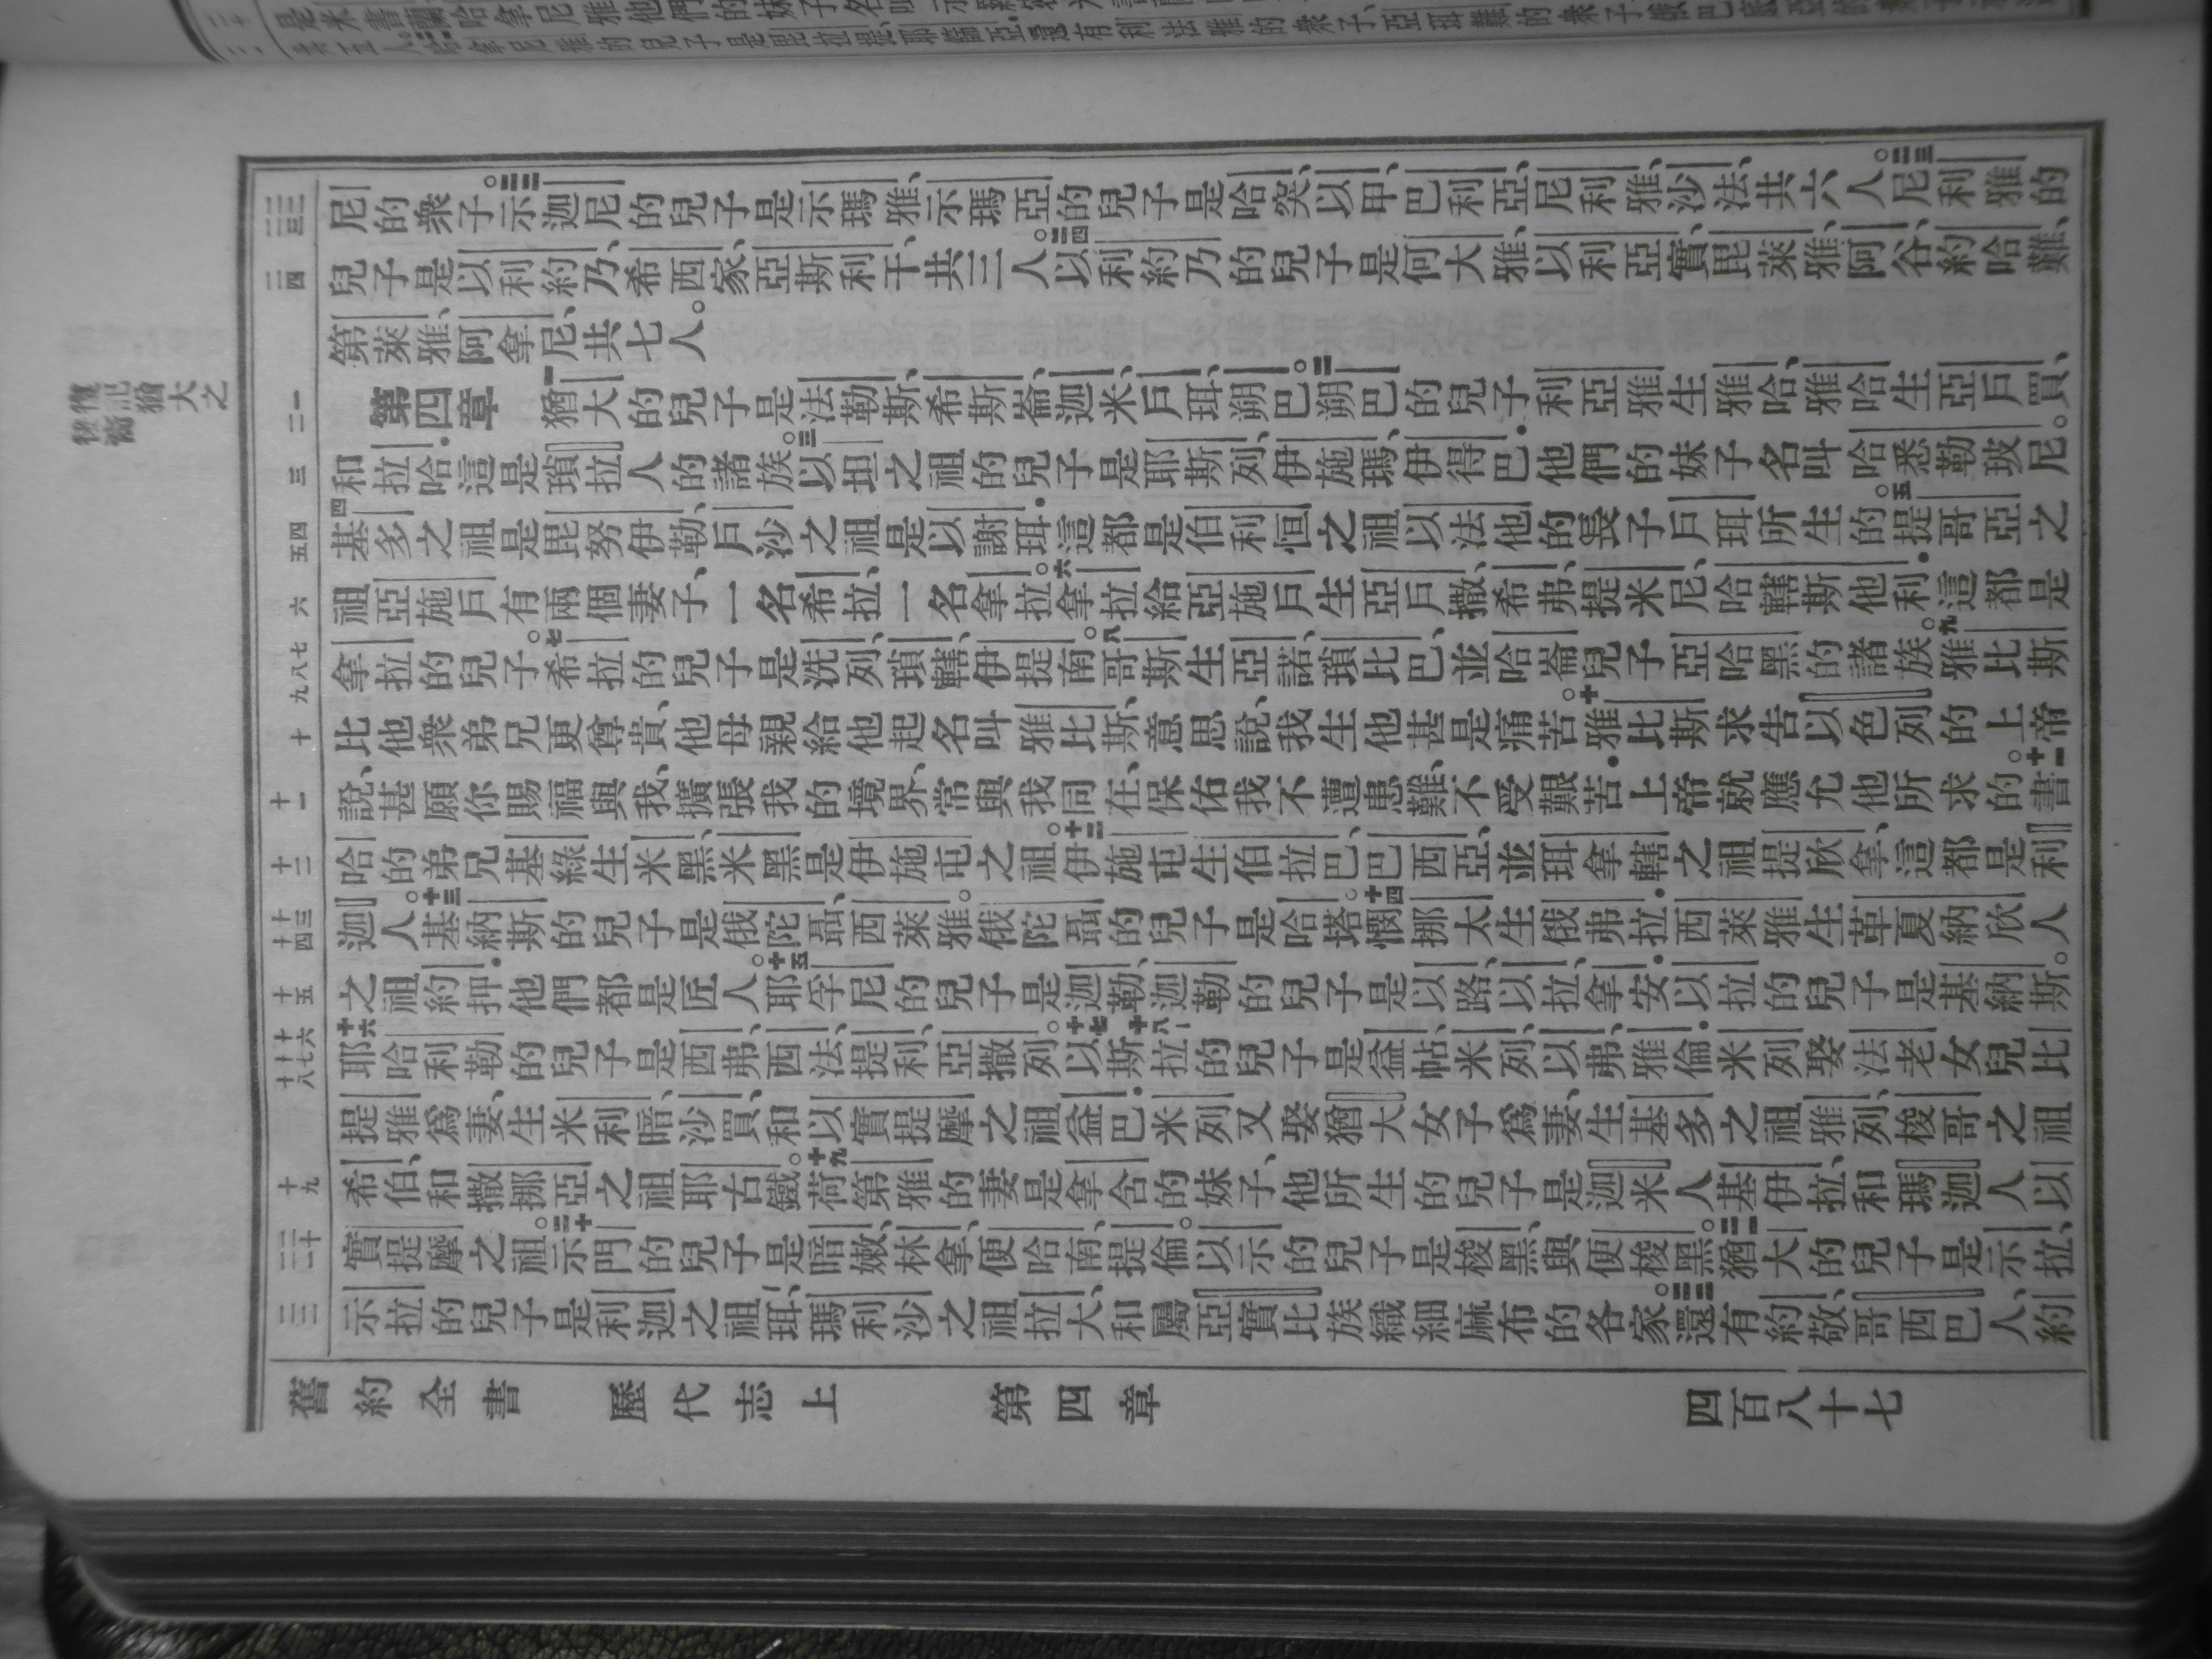 尼的衆子。三二示迦尼的兒子是示瑪雅、示瑪亞的兒子是哈突、以甲、巴利亞、尼利雅、沙法、共六人。三三尼利雅的
兒子是以利約乃、希西家、亞斯利干、共三人。三四以利約乃的兒子是何大雅、以利亞實、毘萊雅、阿谷、約哈難、
第萊雅、阿拿尼、共七人。
第四章 一猶大的兒子是法勒斯、希斯崙、迦米、戶珥、朔巴。二朔巴的兒子利亞雅生雅哈、雅哈生亞戶買、
和拉哈．這是瑣拉人的諸族。三以坦之祖的兒子是耶斯列、伊施瑪、伊得巴．他們的妹子名叫哈悉勒玻尼。
四基多之祖是毘努伊勒、戶沙之祖是以謝珥．這都是伯利恒之祖以法他的長子戶珥所生的。五提哥亞之
祖亞施戶有兩個妻子、一名希拉、一名拿拉。六拿拉給亞施戶生亞戶撒、希弗、提米尼、哈轄斯他利．這都是
拿拉的兒子。七希拉的兒子是洗列、瑣轄、伊提南。八哥斯生亞諾、瑣比巴、並哈崙兒子亞哈黑的諸族。九雅比斯
比他衆弟兄更尊貴、他母親給他起名叫雅比斯、意思說、我生他甚是痛苦。十雅比斯求告以色列的上帝
說、甚願你賜福與我、擴張我的境界、常與我同在、保佑我不遭患難、不受艱苦．上帝就應允他所求的。十一書
哈的弟兄基綠生米黑、米黑是伊施屯之祖。十二伊施屯生伯拉巴、巴西亞、並珥拿轄之祖提欣拿、這都是利
迦人。十三基納斯的兒子是俄陀聶、西萊雅。俄陀聶的兒子是哈塔。十四憫挪太生俄弗拉．西萊雅生革夏納欣人
之祖約押．他們都是匠人。十五耶孚尼的兒子是迦勒、迦勒的兒子是以路、以拉、拿安．以拉的兒子是基納斯。
十六耶哈利勒的兒子是西弗、西法、提利、亞撒列。十七以斯十八拉的兒子是益帖、米列、以弗、雅倫．米列娶法老女兒比
提雅爲妻、生米利暗、沙買、和以實提摩之祖益巴．米列又娶猶大女子爲妻、生基多之祖雅列、梭哥之祖
希伯、和撒挪亞之祖耶古鐵。十九荷第雅的妻是拿含的妹子、他所生的兒子是迦米人基伊拉、和瑪迦人以
實提摩之祖。二十示門的兒子是暗嫩、林拿、便哈南、提倫。以示的兒子是梭黑與便梭黑。二一猶大的兒子是示拉、
示拉的兒子是利迦之祖珥、瑪利沙之祖拉大、和屬亞實比族織細麻布的各家。二二還有約敬、哥西巴人、約
舊約全書 歷代志上 第四章 四百八十七